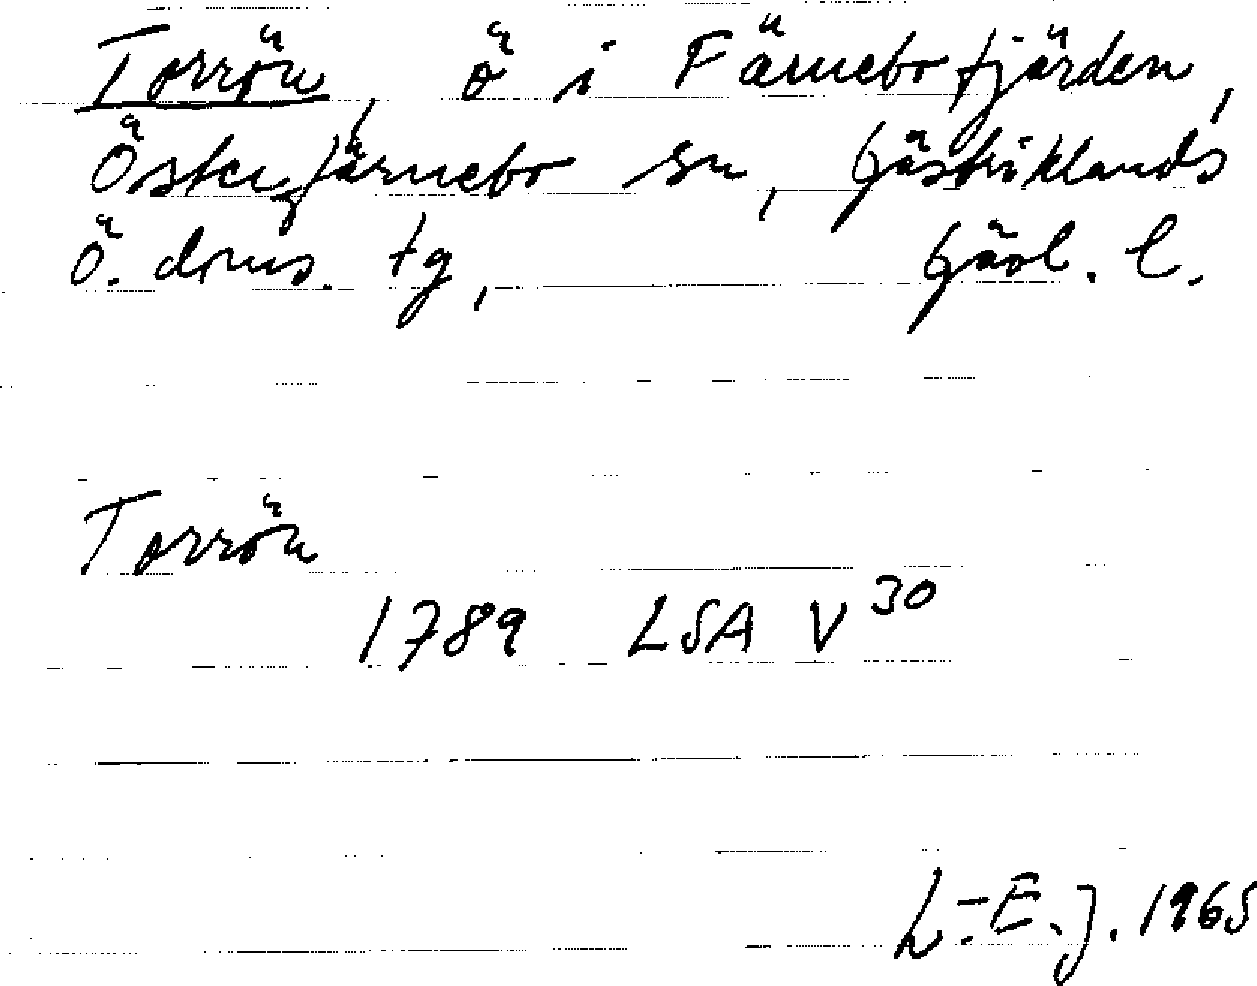 Torrön, ö i Färnebofjärden,
Österfärnebo sn, Gästriklands
ö. doms. tg, Gävl. l.
Torrön
1789 LSA V 30
L.-E. J. 1965